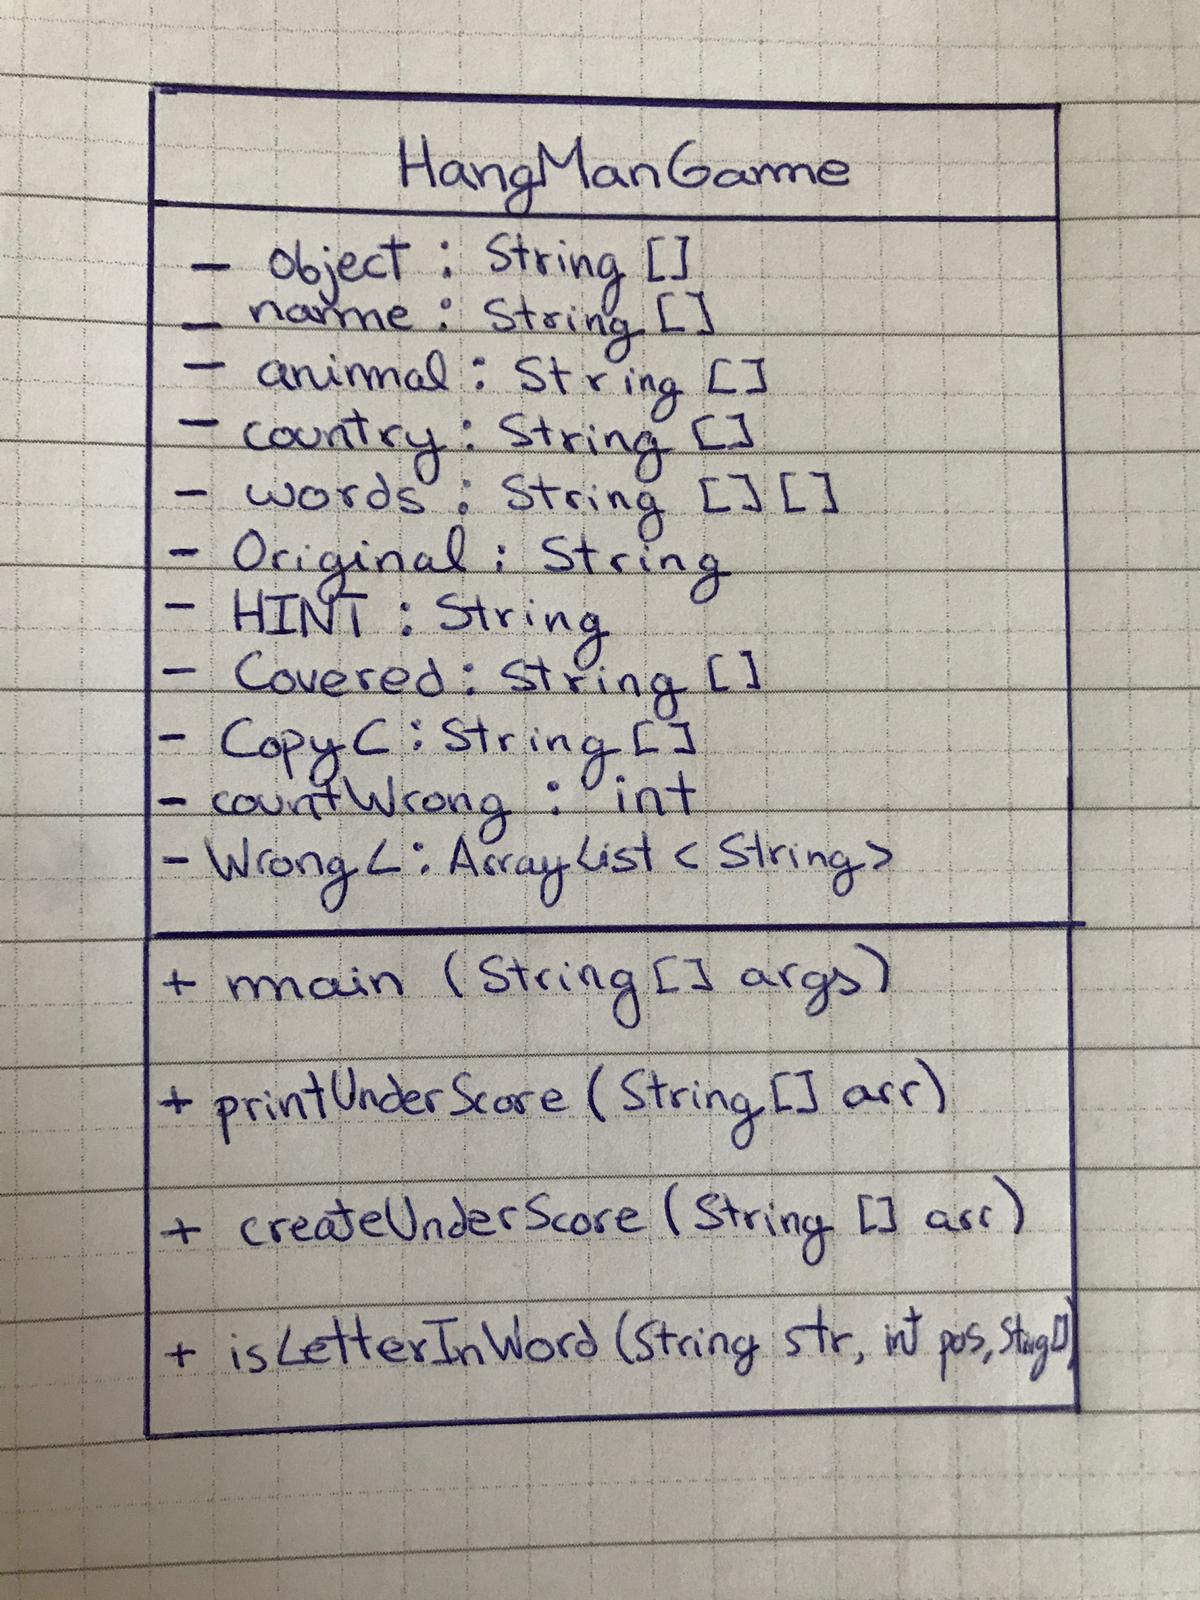 HangManGame
- object : String []
- name : String []
- animal : String []
- country : String []
- words : String [] []
- Original : String
- HINT : String
- Covered : String []
- CopyC : String []
- countWrong : int
- WrongL : ArrayList < String >
+ main (String [] args)
+ printUnderScore (String [] arr)
+ createUnderScore (String [] arr)
+ isLetterInWord (String str, int pos, String[])